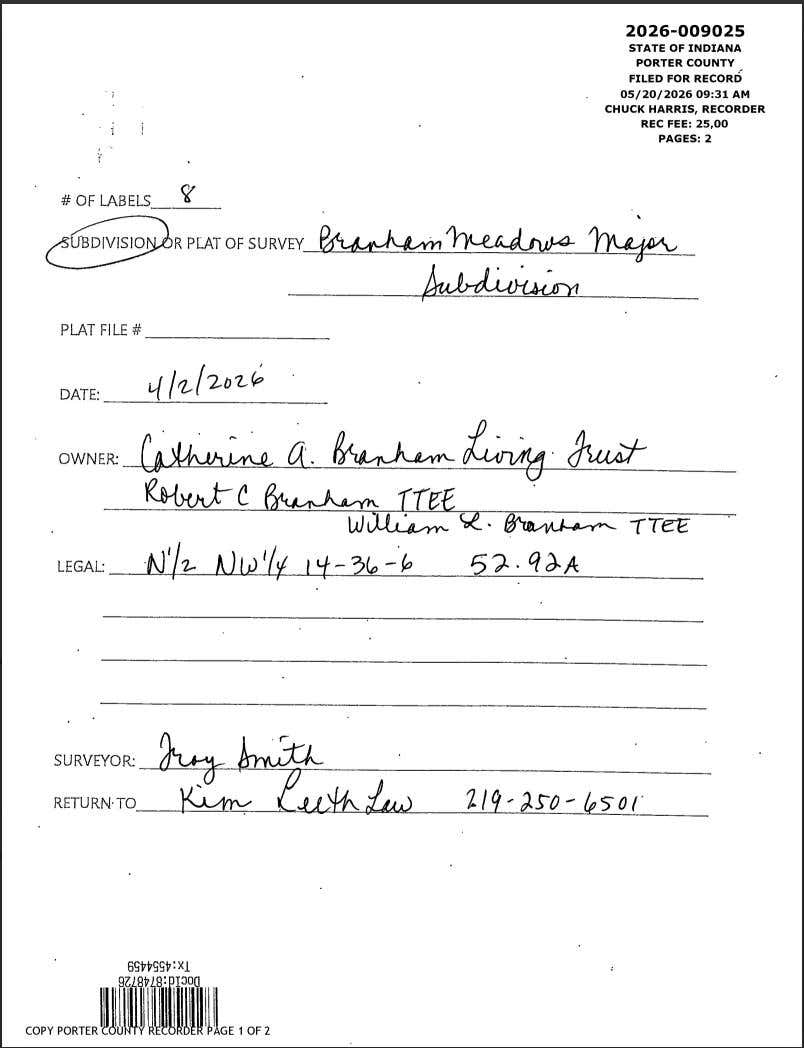 2026-009025
STATE OF INDIANA
PORTER COUNTY
FILED FOR RECORD
05/20/2026 09:31 AM
CHUCK HARRIS, RECORDER
REC FEE: 25,00
PAGES: 2
# OF LABELS 8
SUBDIVISION OR PLAT OF SURVEY Branham Meadows Major
Subdivision
PLAT FILE #
DATE: 4/2/2026
OWNER: Catherine A. Branham Living Trust
Robert C Branham TTEE
William L. Branham TTEE
LEGAL: N1/2 NW1/4 14-36-6 52.92A
SURVEYOR: Troy Smith
RETURN TO Kim Leeth Law 219-250-6501
Tx:4554459
DocId:8748726
COPY PORTER COUNTY RECORDER PAGE 1 OF 2